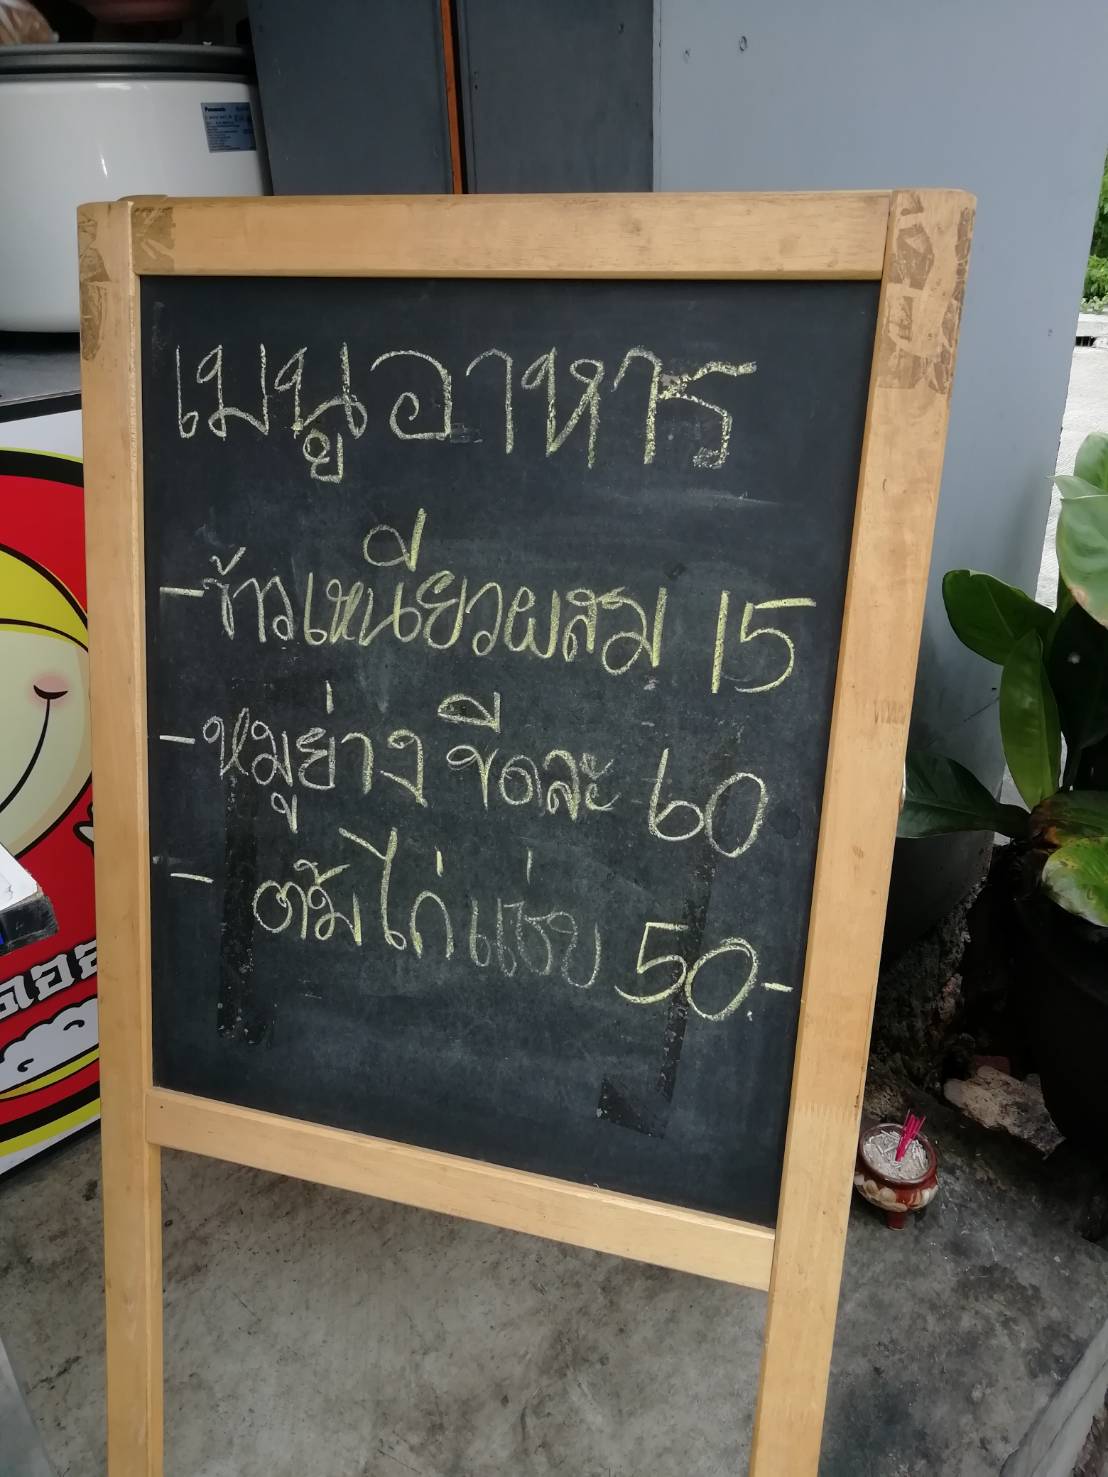 Panasonic
เมนูอาหาร
-ข้าวเหนียวผสม 15
-หมูย่าง ขีดละ 60
- ต้มไก่แซ่บ 50-